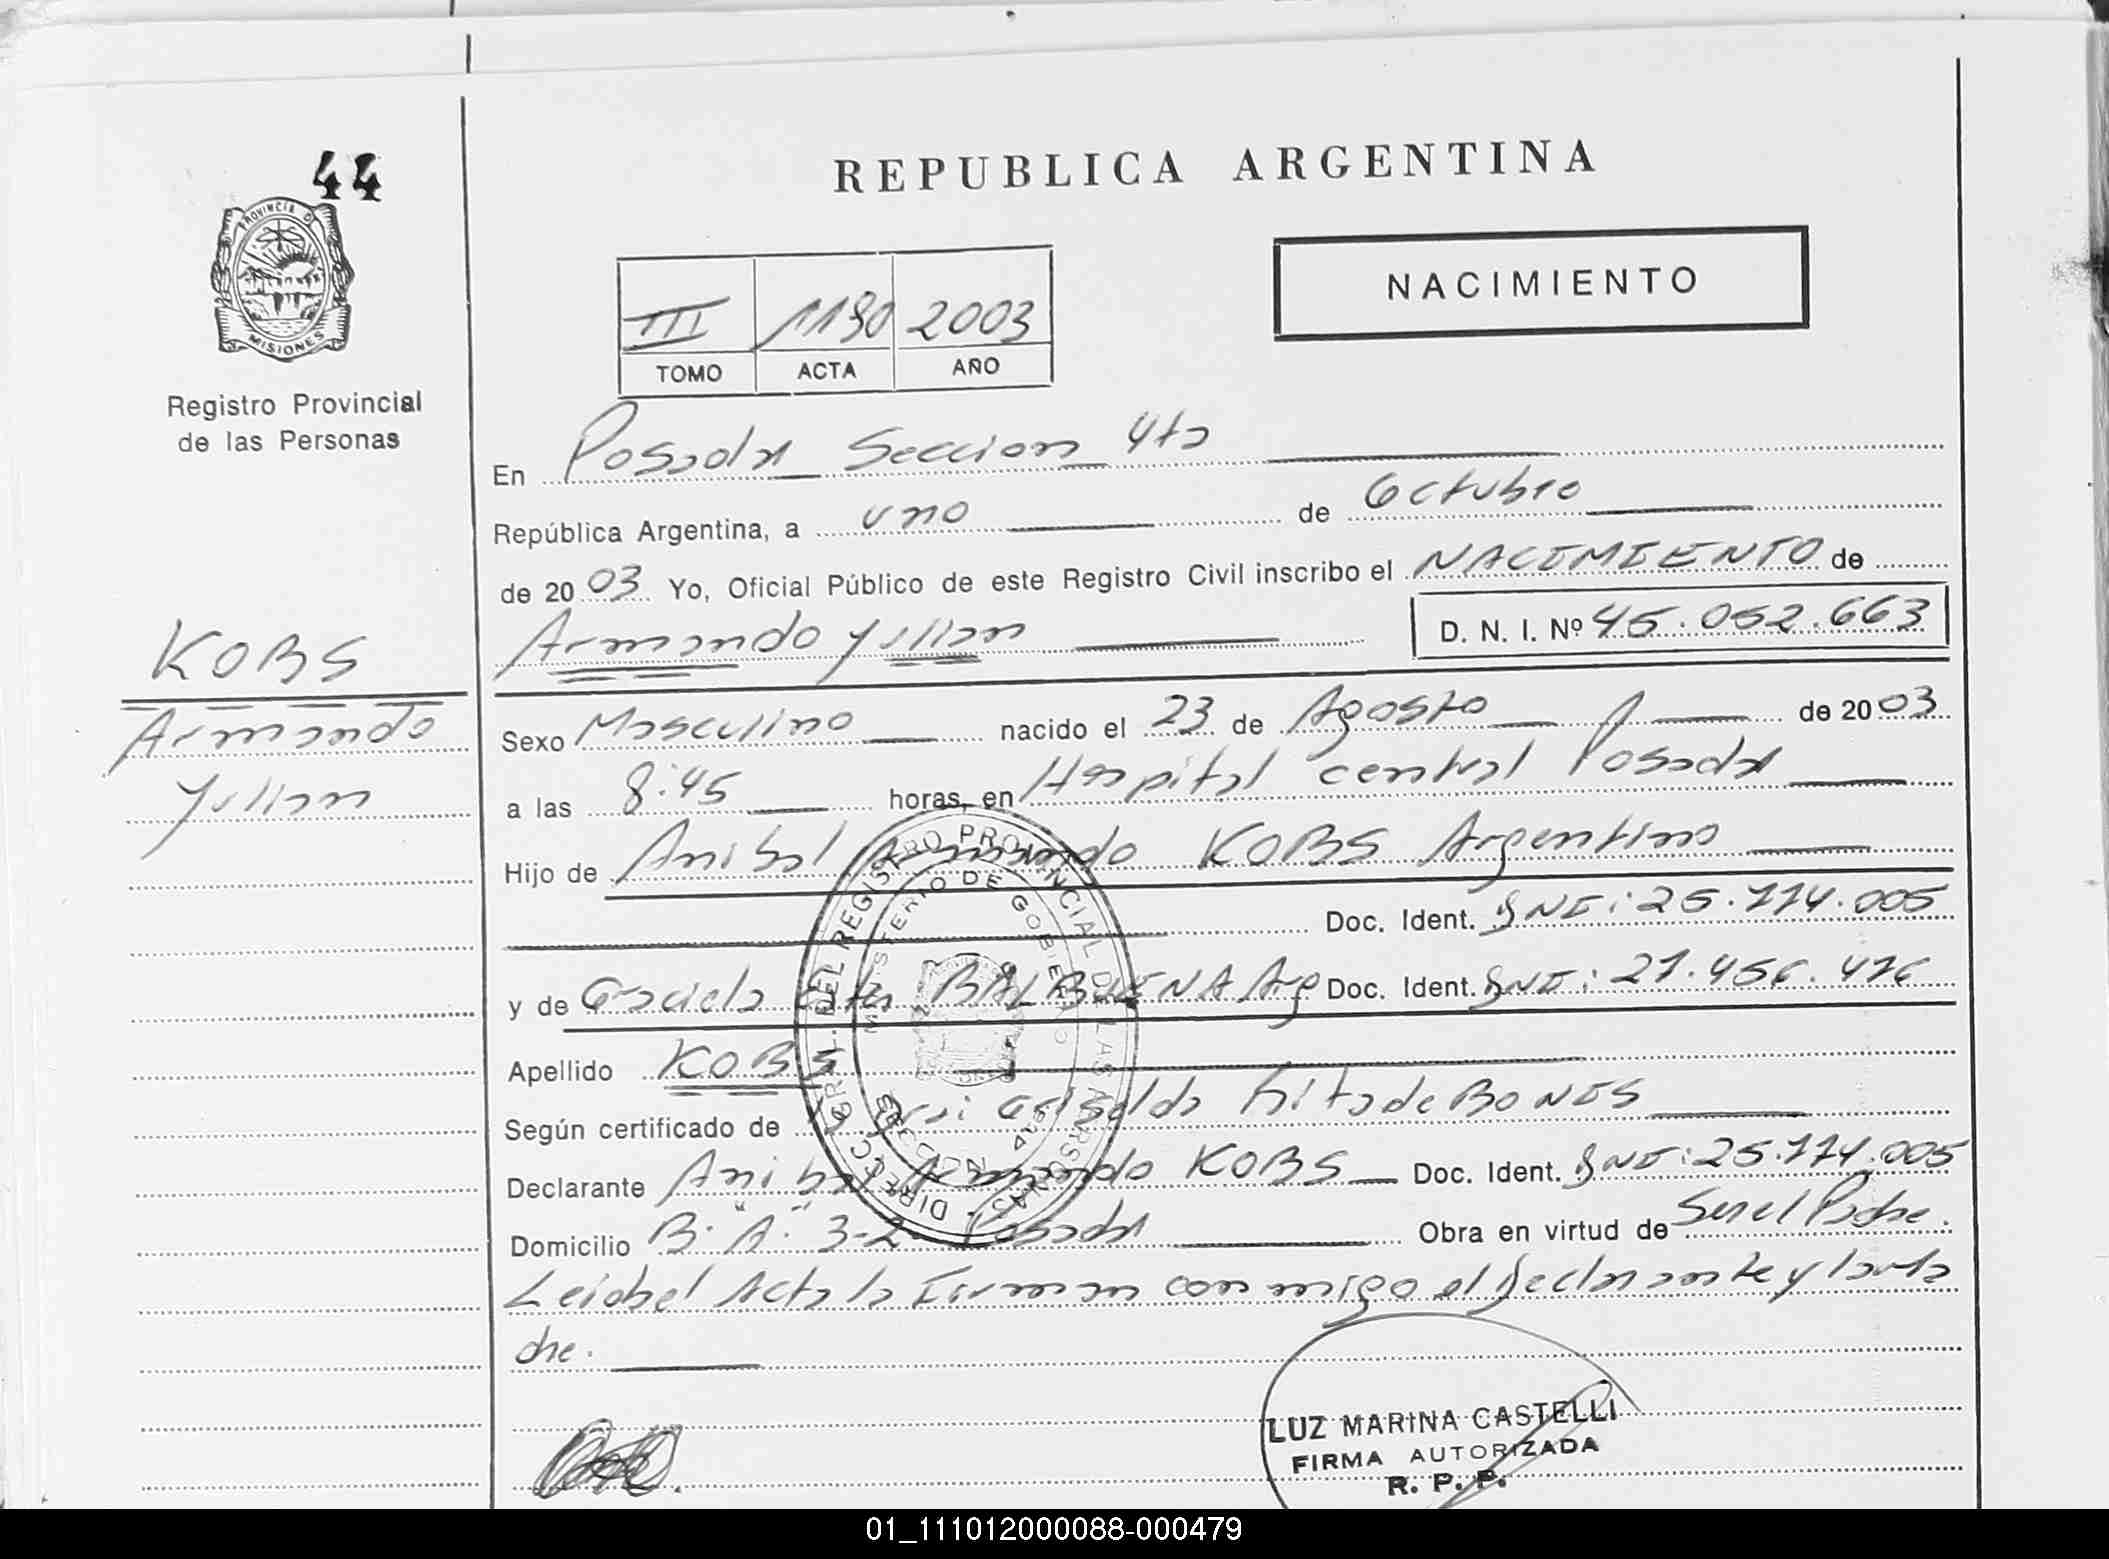 44
PROVINCIA DE
MISIONES
Registro Provincial
de las Personas
REPUBLICA ARGENTINA
NACIMIENTO
III 1190 2003
TOMO ACTA AÑO
En Posadas Seccion 4ta
República Argentina, a uno de Octubre
de 2003 Yo, Oficial Público de este Registro Civil inscribo el NACIMIENTO de
Armando Yulian D. N. I. Nº 45.052.663
KOBS
Armando
Yulian
Sexo Masculino nacido el 23 de Agosto de 2003
a las 8:45 horas, en Hospital central Posadas
Hijo de Anibal Armando KOBS Argentino
Doc. Ident. DNI: 25.774.005
y de Graciela BALBUENA Arg Doc. Ident. DNI: 27.456.476
Apellido KOBS
Según certificado de Griselda Rita de BONES
Declarante Anibal Armando KOBS Doc. Ident. DNI: 25.774.005
Domicilio B. "A" 3-2- Posadas Obra en virtud de Ser el Padre.
Leida el Acta la Firman conmigo el Declarante y la Ma
dre.
DIRECC. GRL. DEL REGISTRO PROVINCIAL DE LAS PERSONAS
MINISTERIO DE GOBIERNO
LUZ MARINA CASTELLI
FIRMA AUTORIZADA
R. P. P.
01_111012000088-000479